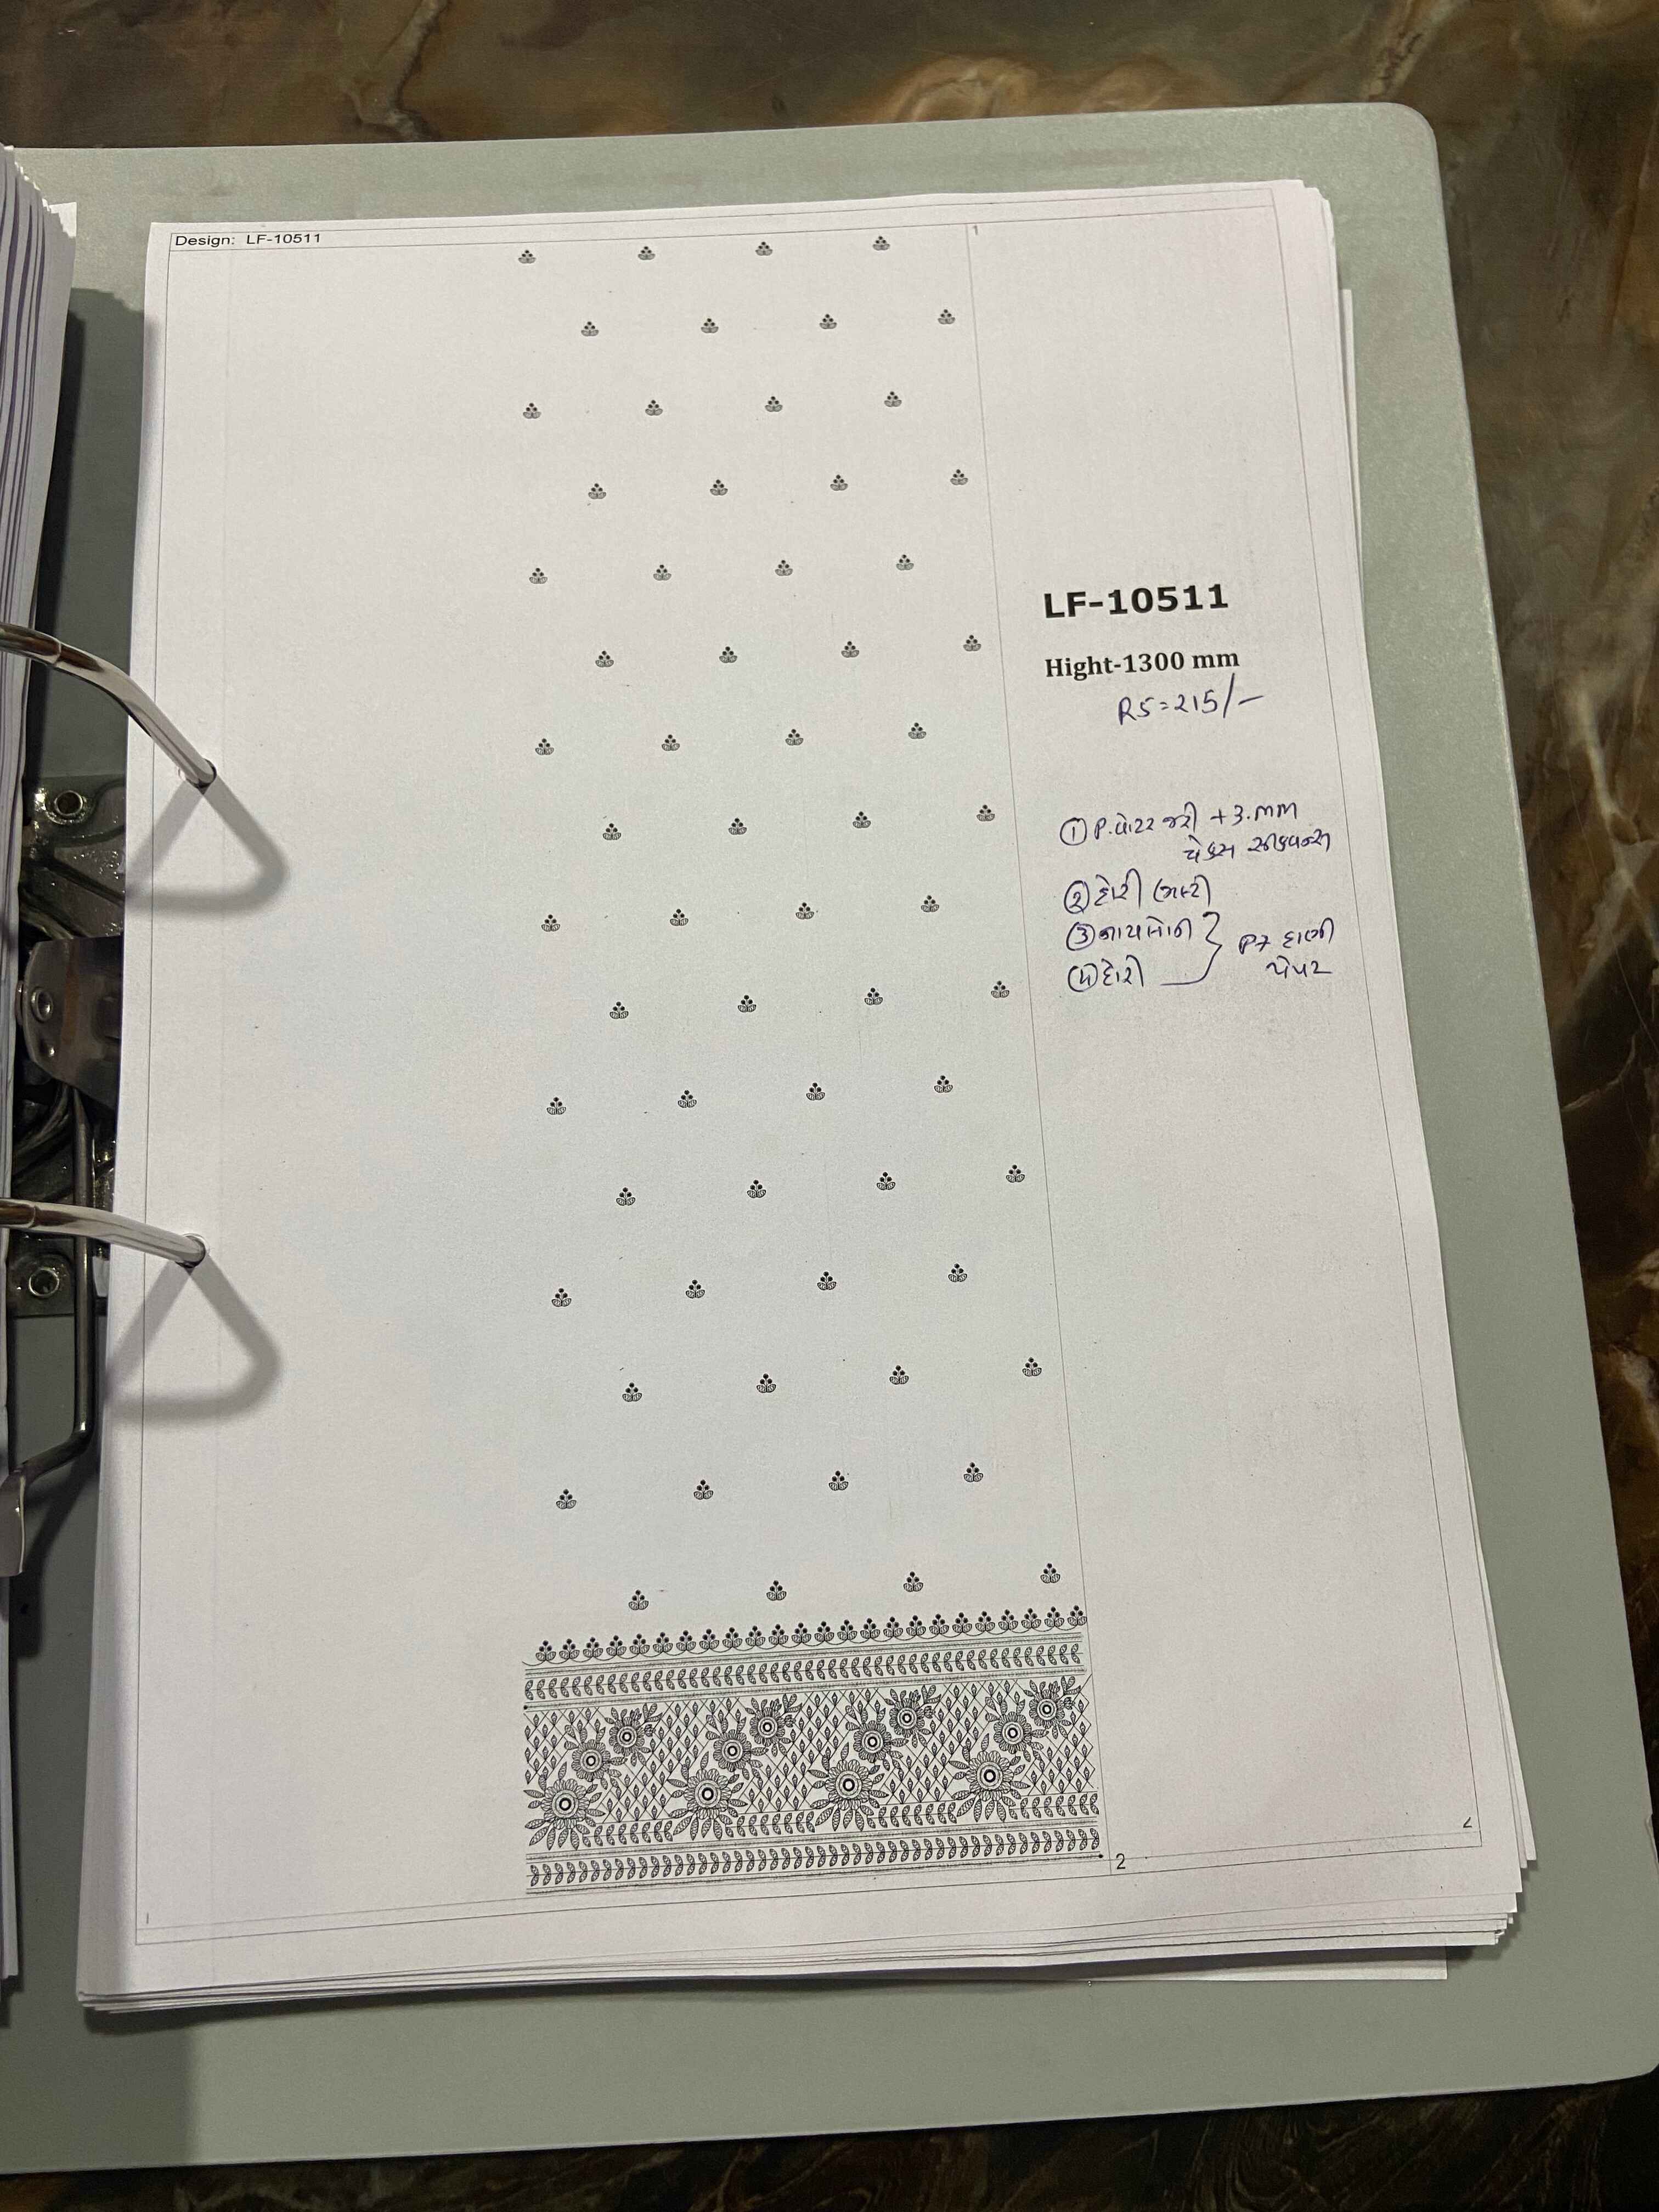 Design: LF-10511
1
LF-10511
Hight-1300 mm
RS=215/-
① P.વોટર જરી +3.mm
ચેકસ સીકવન્સ
② દોરી
③ નાયલોન
④ દોરી
P7
પેપર
2
2
1